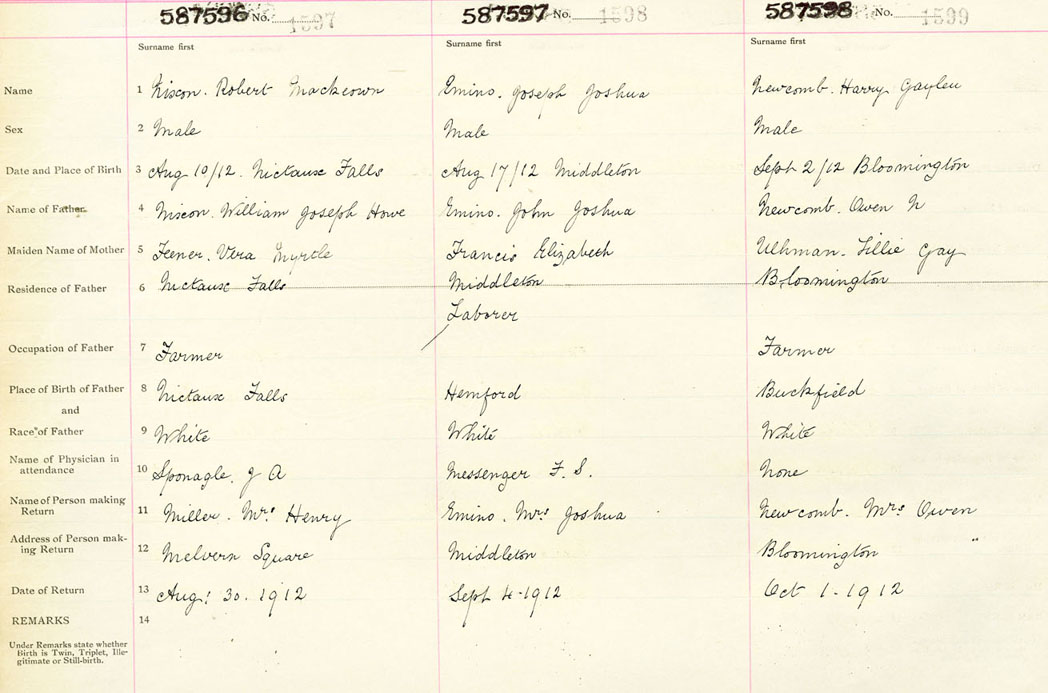 587596 No. 1597 587597 No. 1598 587598 No. 1599
Surname first Surname first Surname first
Name 1 Niscon. Robert Mackeown Emino. Joseph Joshua Newcomb. Harry Gaylen
Sex 2 Male Male Male
Date and Place of Birth 3 Aug 10/12. Nictaux Falls Aug 17/12 Middleton Sept 2/12 Bloomington
Name of Father 4 Niscon. William Joseph Howe Emino. John Joshua Newcomb. Owen N
Maiden Name of Mother 5 Feener. Vera Myrtle Francis Elizabeth Uhlman. Tillie Gay
Residence of Father 6 Nictaux Falls Middleton Bloomington
Laborer
Occupation of Father 7 Farmer Farmer
Place of Birth of Father 8 Nictaux Falls Hemford Buckfield
and
Race of Father 9 White White White
Name of Physician in
attendance 10 Sponagle. J A Messenger F. S. None
Name of Person making
Return 11 Miller. Mrs Henry Emino. Mrs Joshua Newcomb. Mrs Owen
Address of Person mak-
ing Return 12 Melvern Square Middleton Bloomington "
Date of Return 13 Aug! 30. 1912 Sept 4-1912 Oct 1-1912
REMARKS 14
Under Remarks state whether
Birth is Twin, Triplet, Ille-
gitimate or Still-birth.